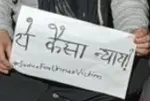 ये कैसा न्याय?
#JusticeForUnnaoVictims